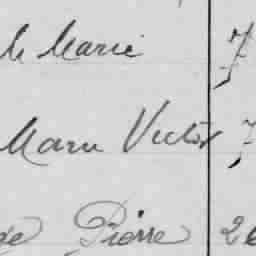 Marie 7
Marie Victor 7
Pierre 2